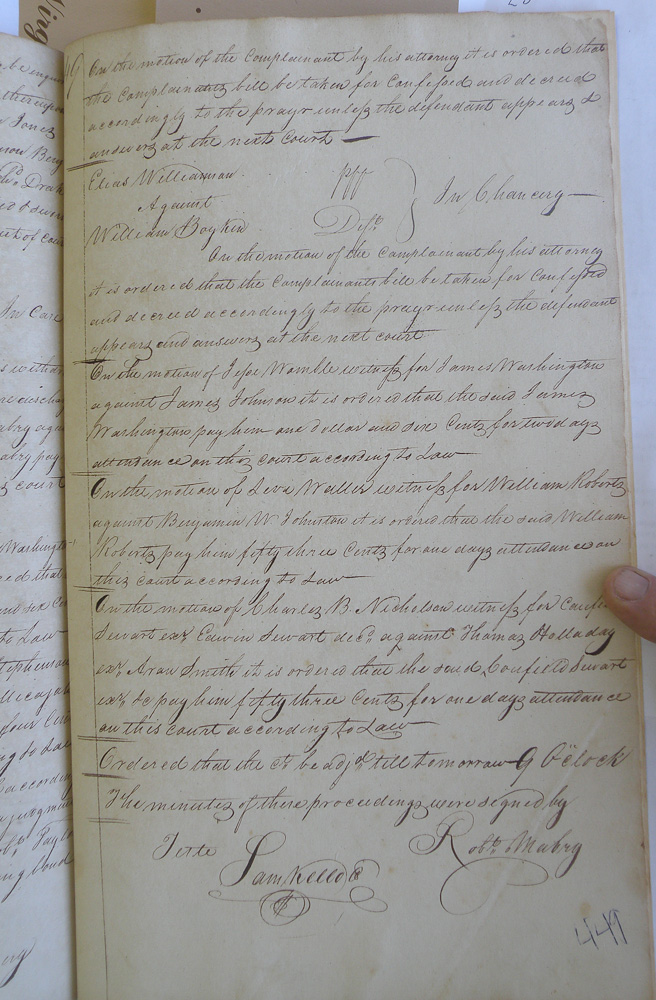 On the motion of the complainant by his attorney it is ordered that
the complainants bill be taken for confessed and decreed
accordingly to the prayr unless the defendant appears &
answers at the next court
Elias Williamson pff
Against In Chancery
William Boykin Deft
On the motion of the complainant by his attorney
it is ordered that the complainants bill be taken for confessed
and decreed accordingly to the prayr unless the defendant
appears and answers at the next court
On the motion of Jesse Womble witness for James Washington
against James Johnson it is ordered that the said James
Washington pay him one dollar and six Cents for two days
attendance on this court according to Law
On the motion of Levi Waller witness for William Roberts
against Benjamin W Johnston it is ordered that the said William
Roberts pay him fifty three Cents for one days attendance on
this court according to Law
On the motion of Charles B. Nicholson witness for
Sewart exr Edwin Sewart decd against Thomas Holladay
exr Aron Smith it is ordered that the said Confield Sewart
exr &c pay him fifty three Cents for one days attendance
on this court according to Law
Ordered that the ct be adjd till tomorrow 9 OClock
The minutes of these proceedings were signed by
Teste Robt. Mabry
Sam Kello
449